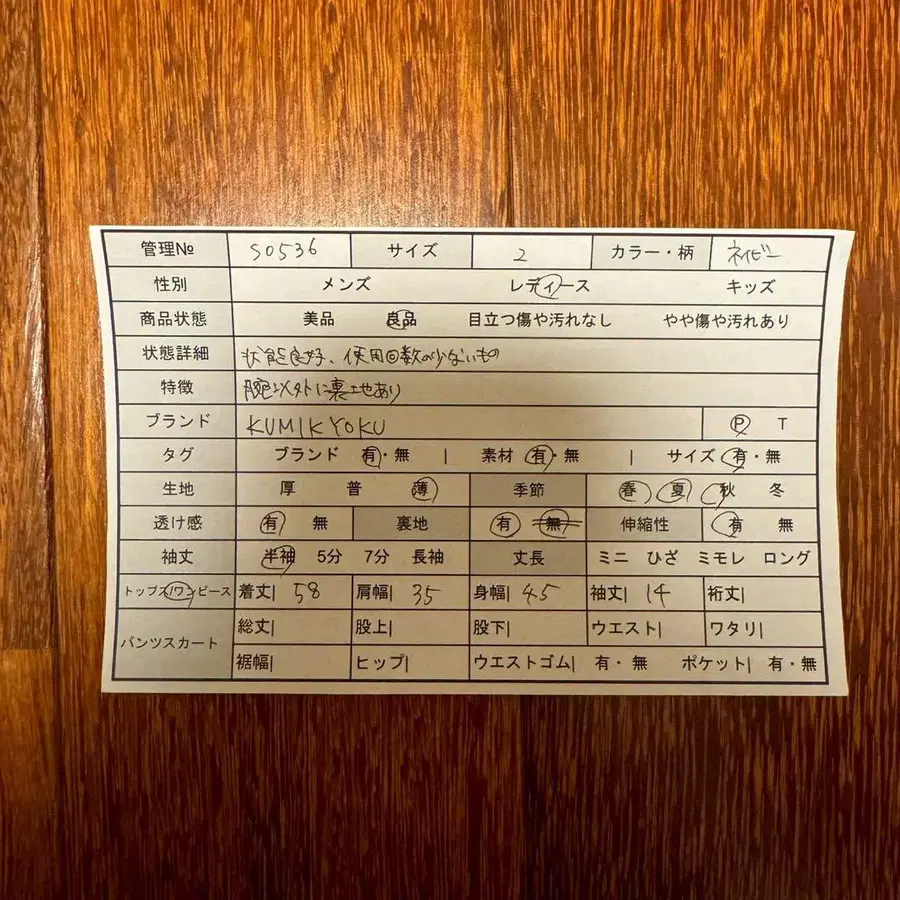 管理№ S0536 サイズ 2 カラー・柄 ネイビー
性別 メンズ レディース キッズ
商品状態 美品 良品 目立つ傷や汚れなし やや傷や汚れあり
状態詳細 状態良好、使用回数の少ないもの
特徴 腕以外に裏地あり
ブランド KUMIKYOKU P T
タグ ブランド 有・無 | 素材 有・無 | サイズ 有・無
生地 厚 普 薄 季節 春 夏 秋 冬
透け感 有 無 裏地 有 無 伸縮性 有 無
袖丈 半袖 5分 7分 長袖 丈長 ミニ ひざ ミモレ ロング
トップス/ワンピース 着丈| 58 肩幅| 35 身幅| 45 袖丈| 14 裄丈|
パンツスカート 総丈| 股上| 股下| ウエスト| ワタリ|
裾幅| ヒップ| ウエストゴム| 有・無 ポケット| 有・無